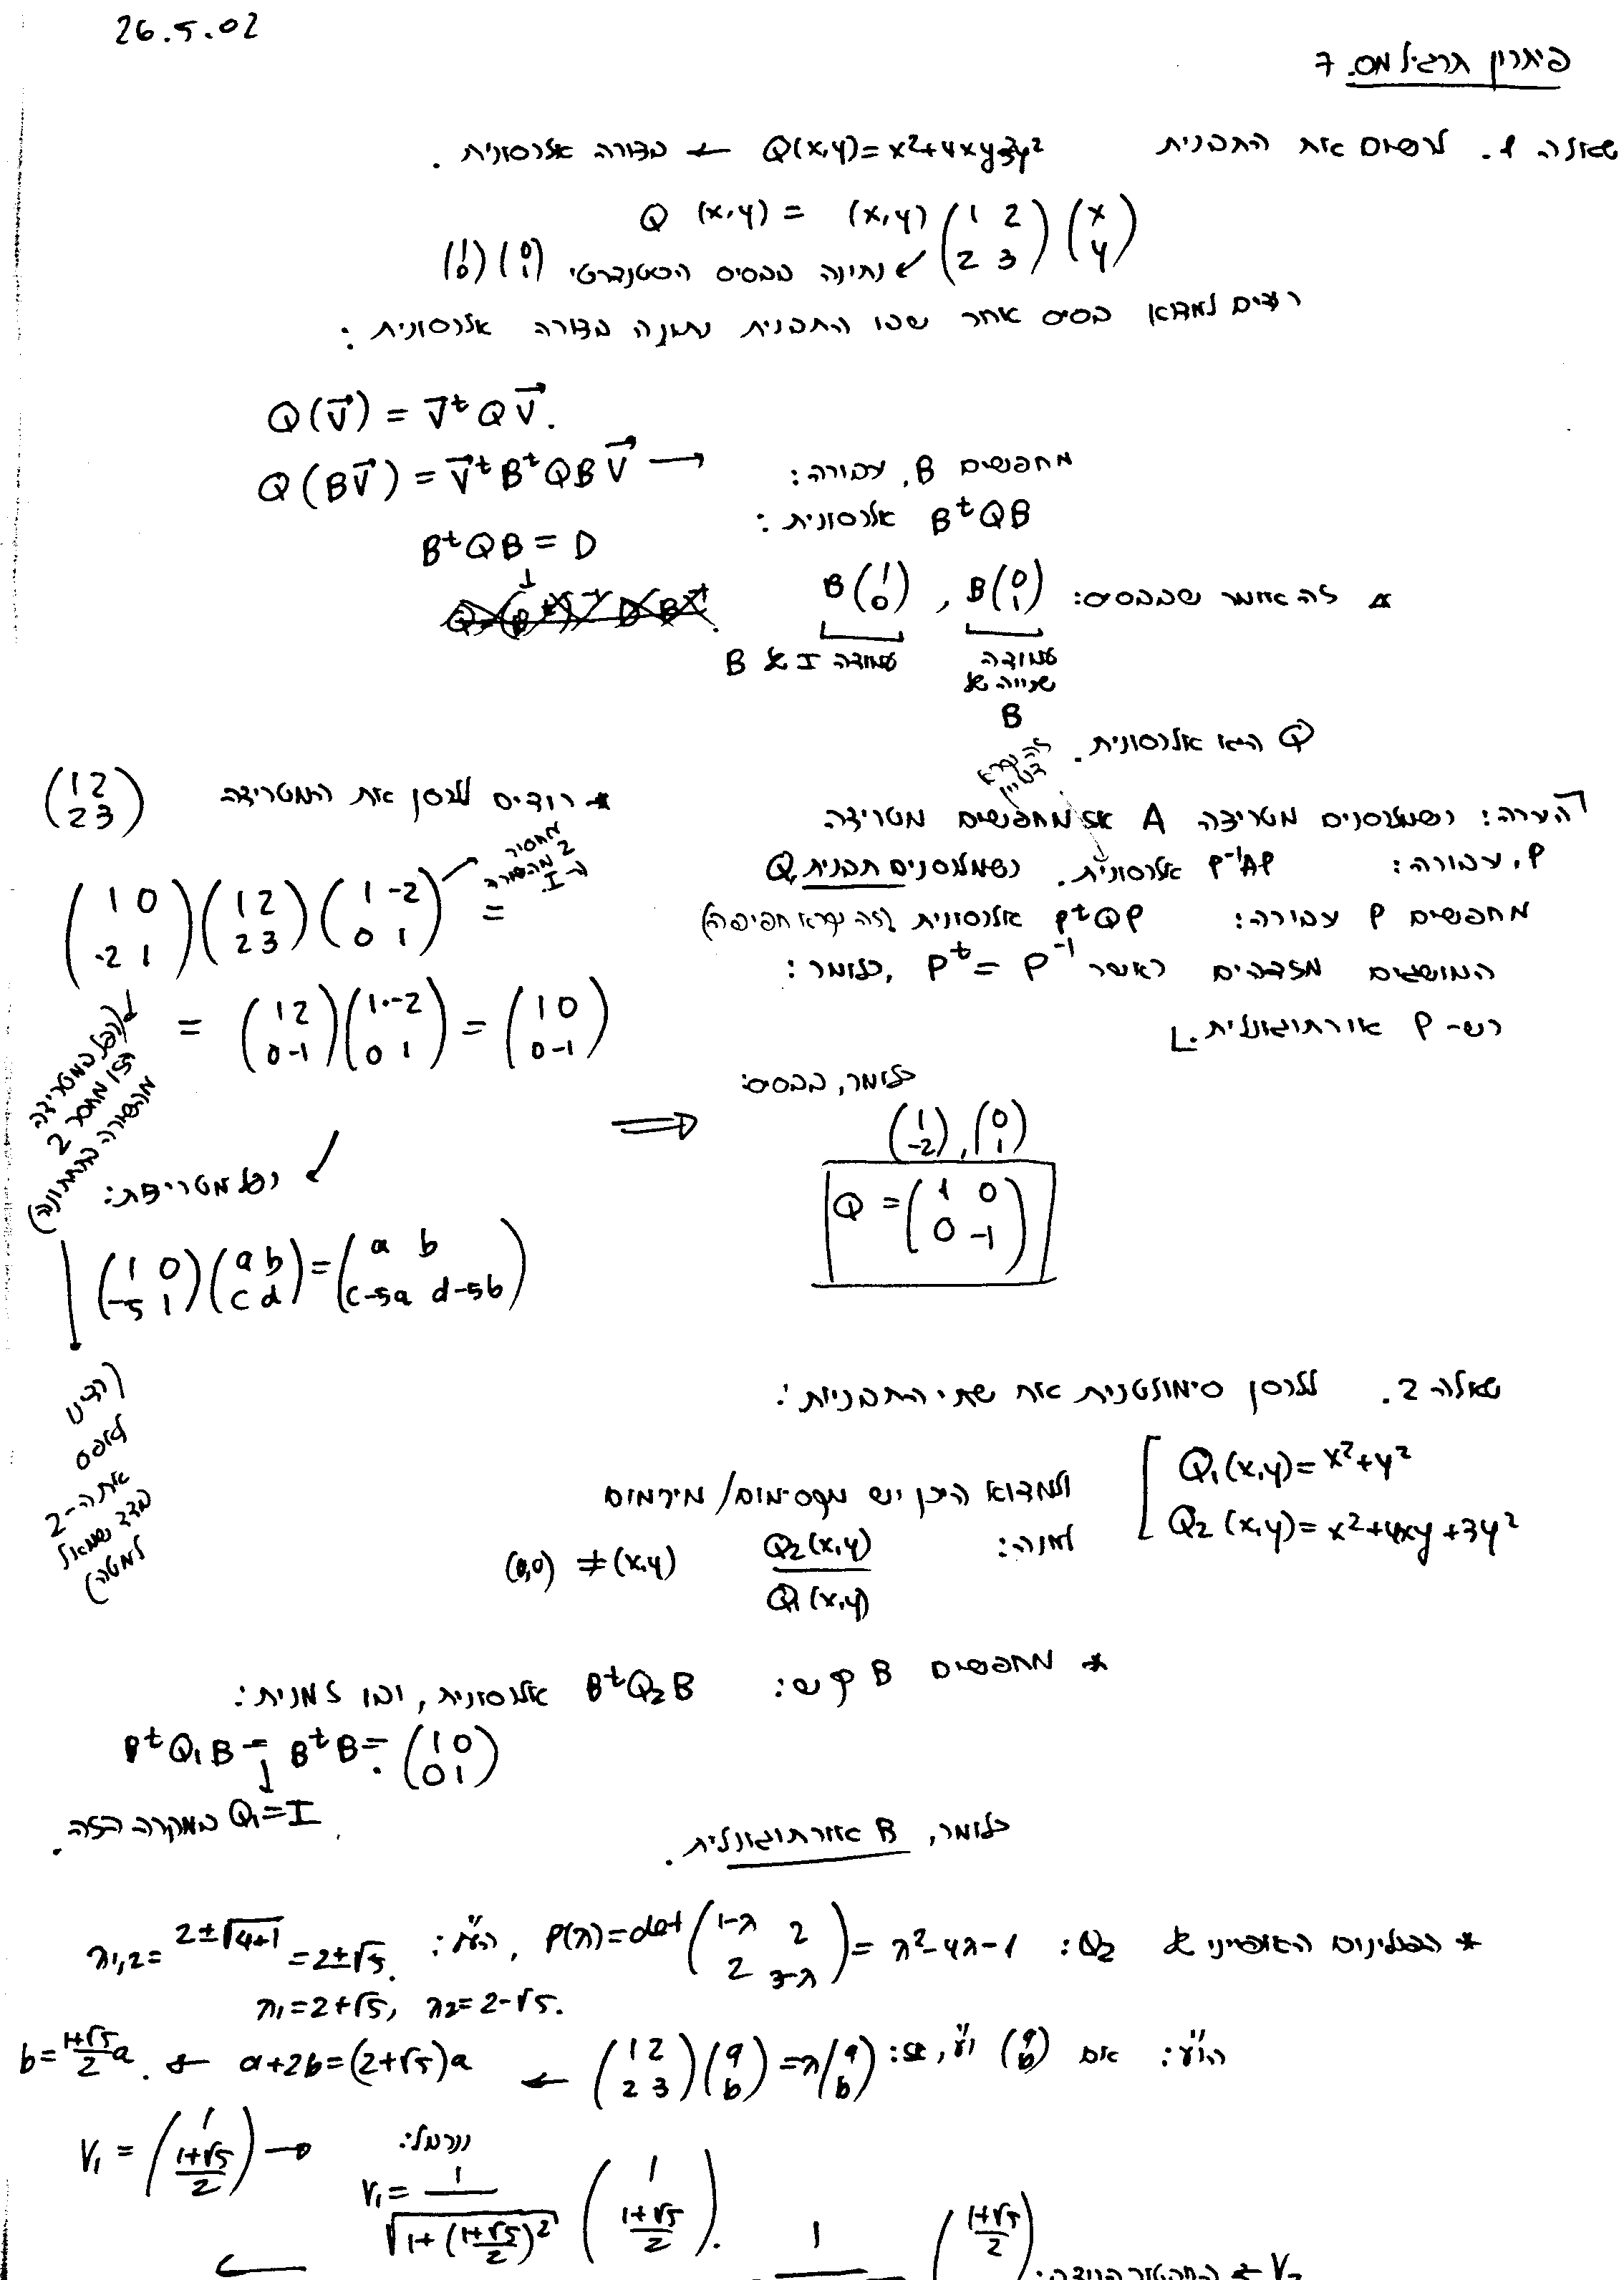 26.5.02
פיתרון תרגיל מס. 7
שאלה 1. לרשום את התבנית Q(x,y)=x²+4xy+3y² ← בצורה אלכסונית.
Q (x,y) = (x,y) (1 2 / 2 3) (x / y)
נתינה בבסיס הסטנדרטי (1 / 0) (0 / 1)
רוצים למצוא בסיס אחר שבו התבנית נתונה בצורה אלכסונית:
Q(v) = vᵗQv.
Q(Bv) = vᵗBᵗQBv →
מחפשים B, עבורה:
BᵗQB אלכסונית:
BᵗQB = D
* זה אומר שבבסיס: B(1 / 0) , B(0 / 1)
עמודה I של B
עמודה שנייה של B
Q היא אלכסונית.
הערה: כשמלכסנים מטריצה A אז מחפשים מטריצה
P, עבורה: P⁻¹AP אלכסונית. כשמלכסנים תבנית Q,
מחפשים P עבורה: PᵗQP אלכסונית (זה נקרא חפיפה)
המושגים מזדהים כאשר Pᵗ = P⁻¹, כלומר:
כש-P אורתוגונלית.
* רוצים ללכסן את המטריצה (1 2 / 2 3)
(1 0 / -2 1) (1 2 / 2 3) (1 -2 / 0 1) =
= (1 2 / 0 -1) (1 -2 / 0 1) = (1 0 / 0 -1)
(כפל במטריצה
הזו מחסר 2
מהשורה התחתונה)
כלומר, בבסיס:
(1 / -2) , (0 / 1)
Q = (1 0 / 0 -1)
כפל מטריצות:
(1 0 / -5 1) (a b / c d) = (a b / c-5a d-5b)
(רצינו
לאפס
את ה-2
בצד שמאל
למטה)
שאלה 2. ללכסן סימולטנית את שתי התבניות:
Q₁(x,y)=x²+y²
Q₂(x,y)=x²+4xy+3y²
ולמצוא היכן יש מקסימום/מינימום
למנה: Q₂(x,y) / Q₁(x,y) (0,0) ≠ (x,y)
* מחפשים B כך ש: BᵗQ₂B אלכסונית, ובו זמנית:
BᵗQ₁B = BᵗB = (1 0 / 0 1)
Q₁=I במקרה הזה.
כלומר, B אורתוגונלית.
* הפולינום האופייני של Q₂: P(λ)=det(1-λ 2 / 2 3-λ) = λ²-4λ-1, הע"ע: λ₁,₂ = 2±√4+1 = 2±√5.
λ₁=2+√5, λ₂=2-√5.
הו"ע: אם (a / b) ו"ע, אז: (1 2 / 2 3)(a / b) = λ(a / b) ← a+2b=(2+√5)a ← b=1+√5/2 a.
V₁ = (1 / 1+√5/2) →
ננרמל:
V₁ = 1/√1+(1+√5/2)² (1 / 1+√5/2).